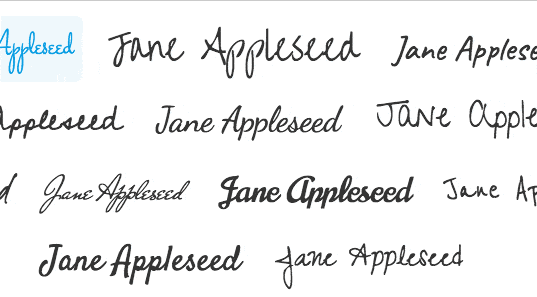 Appleseed Jane Appleseed Jane Applese
Appleseed Jane Appleseed Jane Apple
d Jane Appleseed Jane Appleseed Jane Ap
Jane Appleseed Jane Appleseed